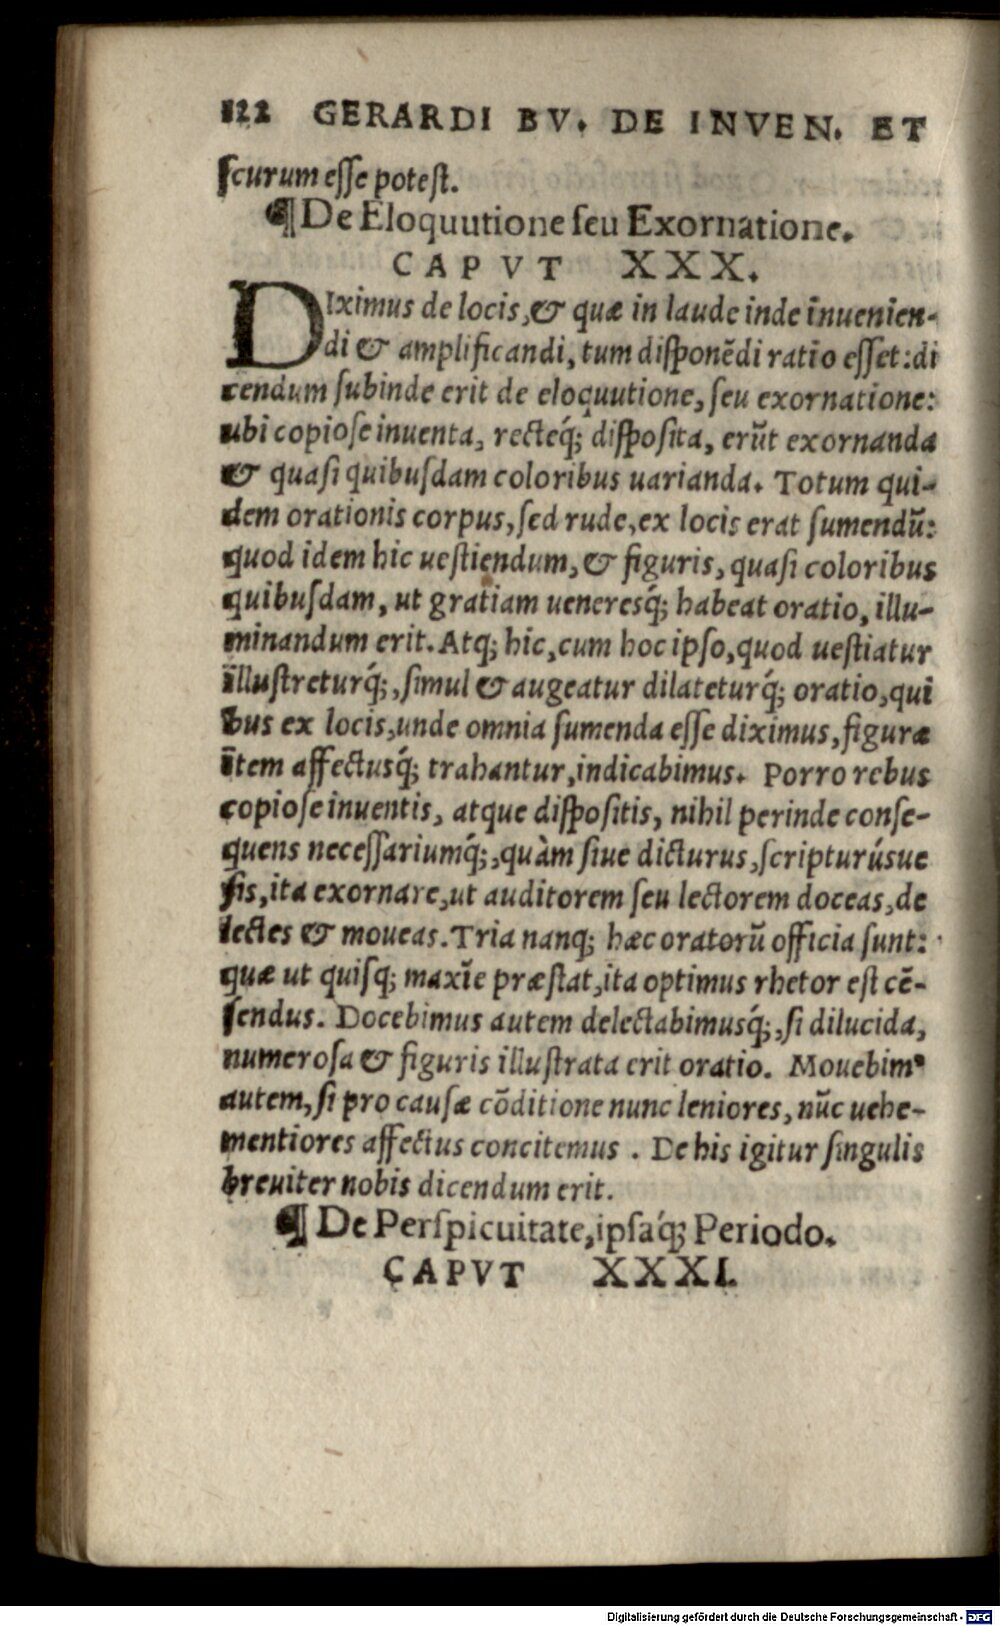 122 GERARDI BV. DE INVEN. ET
ſcurum eſſe poteſt.
¶ De Eloquutione ſeu Exornatione.
CAPVT XXX.
DIximus de locis, & quæ in laude inde inuenien-
di & amplificandi, tum diſponēdi ratio eſſet: di
cendum ſubinde erit de eloquutione, ſeu exornatione:
ubi copioſe inuenta, recteq́; diſpoſita, erūt exornanda
& quaſi quibuſdam coloribus uarianda. Totum qui-
dem orationis corpus, ſed rude, ex locis erat ſumendū:
quod idem hic ueſtiendum, & figuris, quaſi coloribus
quibuſdam, ut gratiam ueneresq́; habeat oratio, illu-
minandum erit. Atq; hic, cum hoc ipſo, quod ueſtiatur
illuſtreturq́;, ſimul & augeatur dilateturq́; oratio, qui
bus ex locis, unde omnia ſumenda eſſe diximus, figuræ
item affectusq́; trahantur, indicabimus. Porro rebus
copioſe inuentis, atque diſpoſitis, nihil perinde conſe-
quens neceſſariumq́;, quàm ſiue dicturus, ſcripturúsue
ſis, ita exornare, ut auditorem ſeu lectorem doceas, de
lectes & moueas. Tria nanq; hæc oratorū officia ſunt:
quæ ut quiſq; maxīe præſtat, ita optimus rhetor eſt cē-
ſendus. Docebimus autem delectabimusq́;, ſi dilucida,
numeroſa & figuris illuſtrata erit oratio. Mouebimꝰ
autem, ſi pro cauſæ cōditione nunc leniores, nūc uehe-
mentiores affectus concitemus. De his igitur ſingulis
breuiter nobis dicendum erit.
¶ De Perſpicuitate, ipſaq́; Periodo.
CAPVT XXXI.
Digitalisierung gefördert durch die Deutsche Forschungsgemeinschaft - DFG